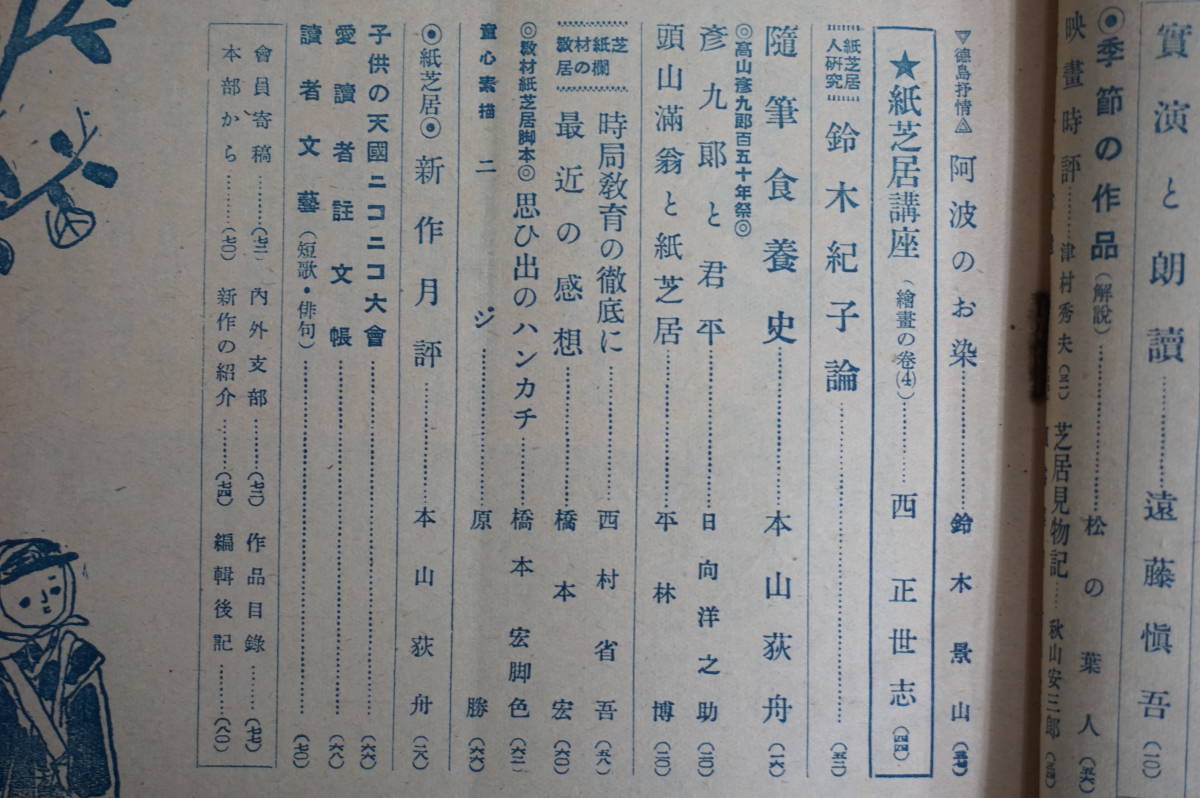 實演と朗讀…………遠藤愼吾(一〇)
◉季節の作品(解說)…………松の葉人(五六)
映畫時評………津村秀夫(三二)
芝居見物記……秋山安三郎(三四)
▽德島抒情△ 阿波のお染…………鈴木景山(五七)
★紙芝居講座(繪畫の卷(4))…………西正世志(四四)
紙芝居人硏究 鈴木紀子論…………(五二)
隨筆食養史…………本山荻舟(二六)
◎高山彥九郞百五十年祭◎
彥九郞と君平…………日向洋之助(二〇)
頭山滿翁と紙芝居…………平林博(二〇)
敎材紙芝居の欄
時局敎育の徹底に…………西村省吾(五八)
最近の感想…………橋本宏(六〇)
◎敎材紙芝居脚本◎思ひ出のハンカチ………橋本宏脚色(六二)
童心素描 二ジ…………原勝(六六)
◉紙芝居◉ 新作月評…………本山荻舟(二八)
子供の天國ニコニコ大會…………(六六)
愛讀者註文帳…………(六八)
讀者文藝(短歌・俳句)…………(七〇)
會員寄稿………(七三) 內外支部………(七三) 作品目錄………(七七)
本部から………(七〇) 新作の紹介………(七四) 編輯後記………(八〇)